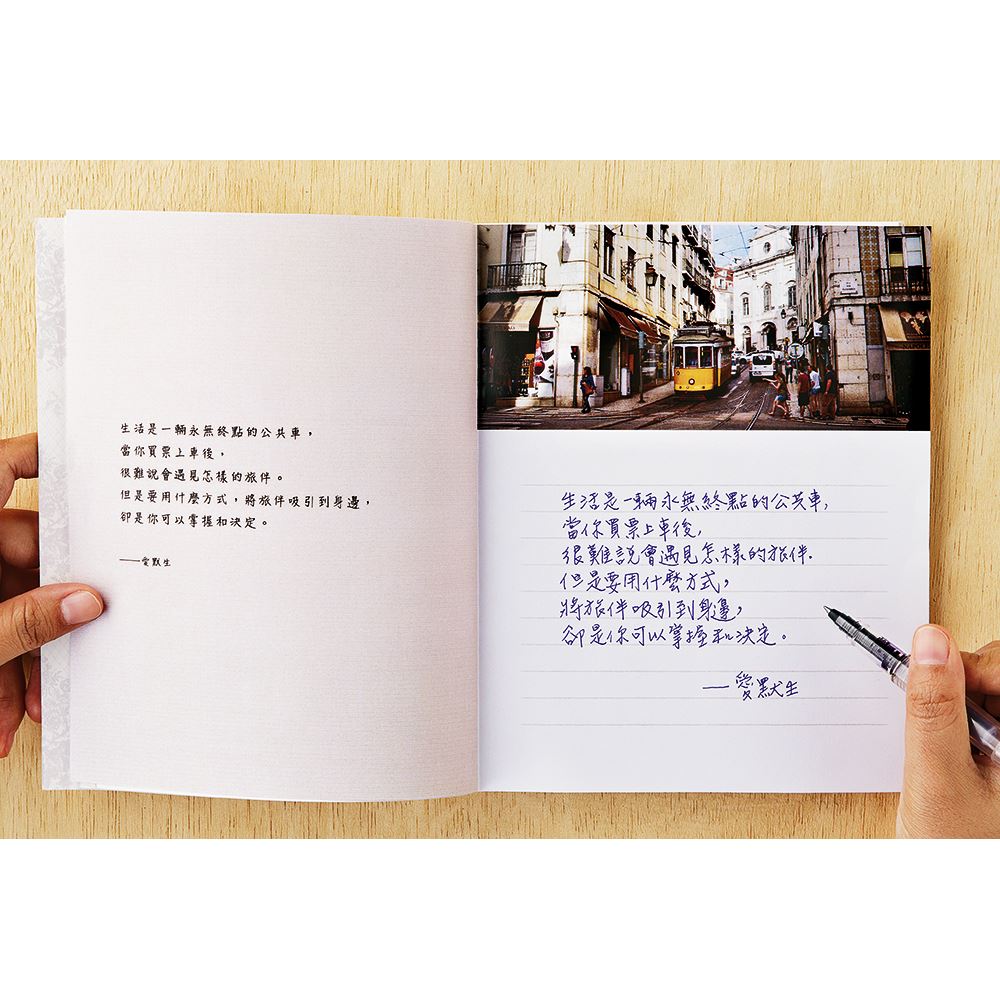 生活是一輛永無終點的公共車，
當你買票上車後，
很難說會遇見怎樣的旅伴。
但是要用什麼方式，將旅伴吸引到身邊，
卻是你可以掌握和決定。
——愛默生
生活是一輛永無終點的公共車，
當你買票上車後，
很難說會遇見怎樣的旅伴.
但是要用什麼方式，
將旅伴吸引到身邊，
卻是你可以掌握和決定。
—愛默生